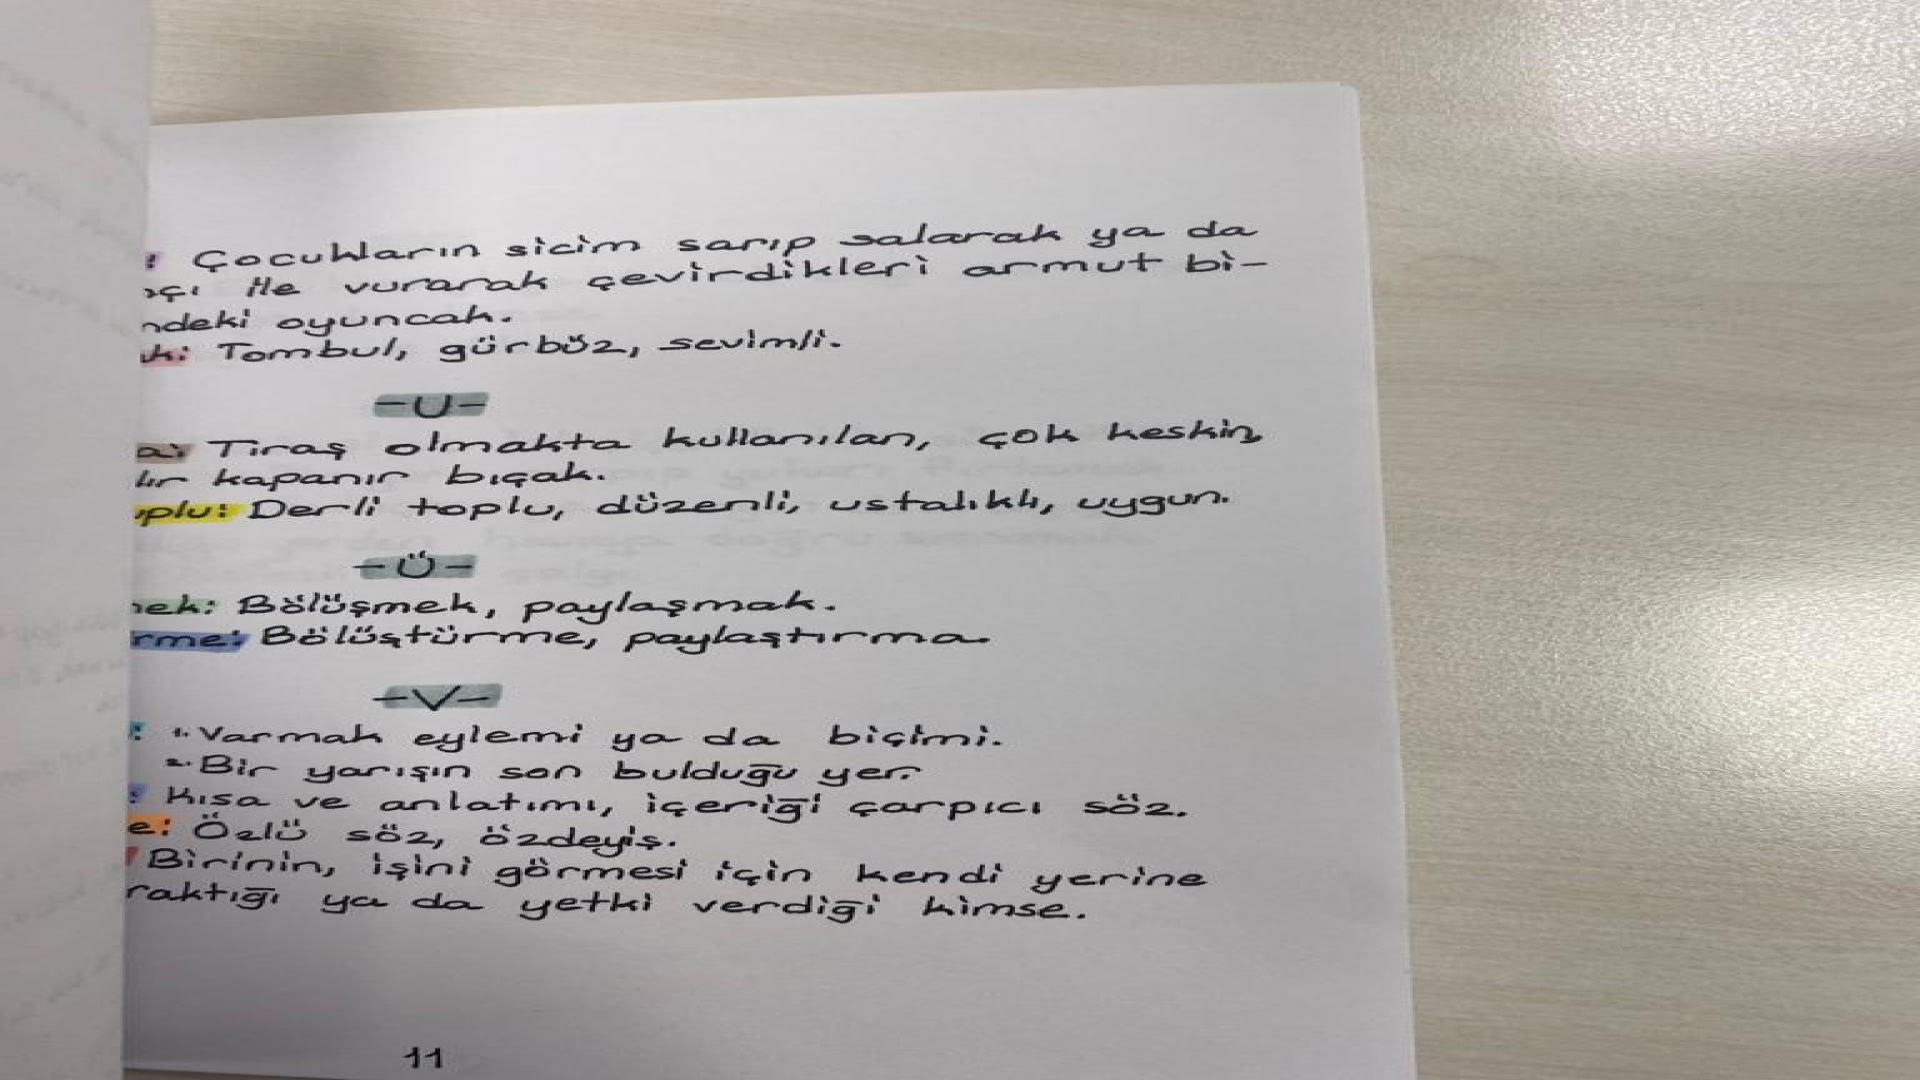 : Çocukların sicim sarıp salarak ya da
çı ile vurarak çevirdikleri armut bi-
ndeki oyuncak.
k: Tombul, gürbüz, sevimli.
-U-
a: Tıraş olmakta kullanılan, çok keskin,
lır kapanır bıçak.
uplu: Derli toplu, düzenli, ustalıklı, uygun.
-Ü-
mek: Bölüşmek, paylaşmak.
rme: Bölüştürme, paylaştırma.
-V-
: 1. Varmak eylemi ya da biçimi.
2. Bir yarışın son bulduğu yer.
: Kısa ve anlatımı, içeriği çarpıcı söz.
e: Özlü söz, özdeyiş.
Birinin, işini görmesi için kendi yerine
raktığı ya da yetki verdiği kimse.
11